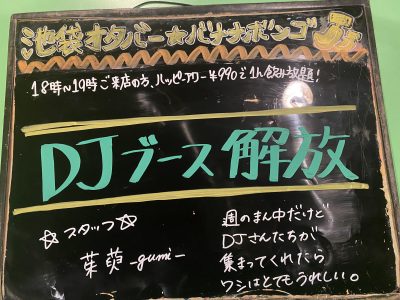 池袋オタバー☆バナナボンゴ
18時~19時ご来店の方、ハッピーアワー¥990で1h飲み放題!
DJブース 解放
☆スタッフ☆
茱萸 -gumi-
週のまん中だけど
DJさんたちが
集まってくれたら
ワシはとてもうれしい。